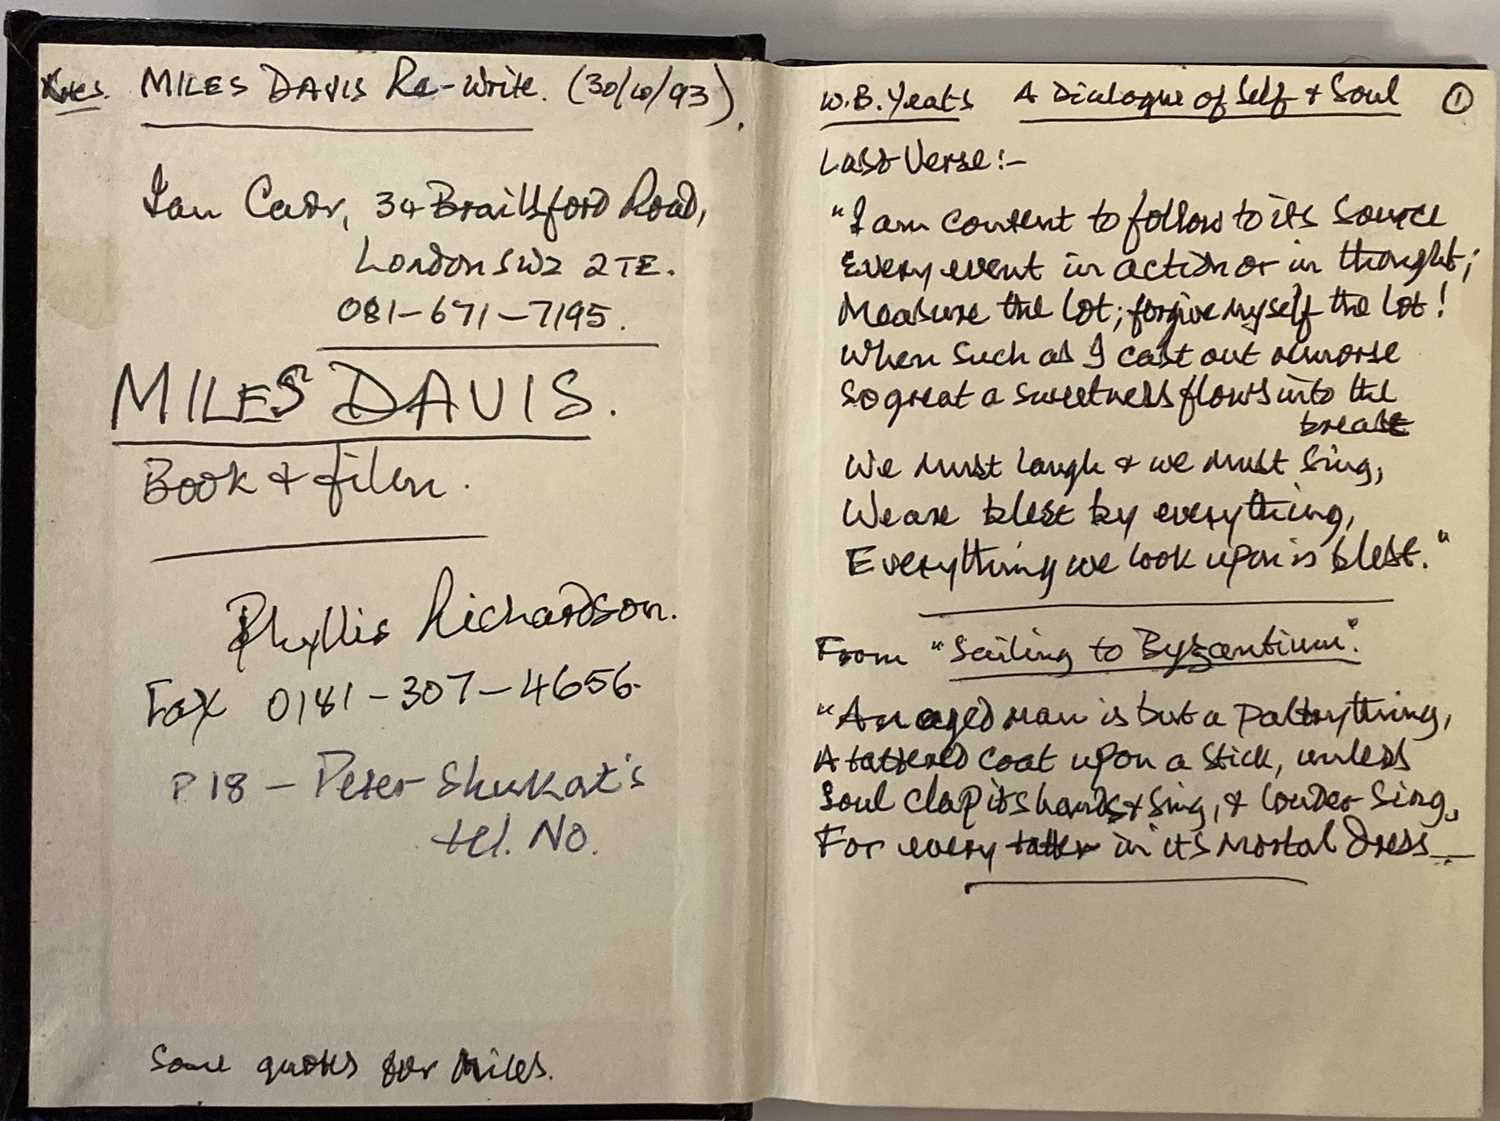 Notes. MILES DAVIS Re-Write. (30/10/93).
Ian Carr, 34 Brailsford Road,
London SW2 2TE.
081-671-7195.
MILES DAVIS.
Book & film.
Phyllis Richardson.
Fax 0181-307-4656.
P18 - Peter Shukat's
tel. No.
Some quotes for Miles.
W.B. Yeats A Dialogue of Self & Soul ①
Last Verse:-
"I am content to follow to its source
Every event in action or in thought;
Measure the lot; forgive myself the lot!
When such as I cast out remorse
So great a sweetness flows into the
breast
We must laugh & we must sing,
We are blest by everything,
Everything we look upon is blest."
From "Sailing to Byzantium".
"An aged man is but a paltry thing,
A tattered coat upon a stick, unless
Soul clap its hands & sing, & louder sing,
For every tatter in its mortal dress—